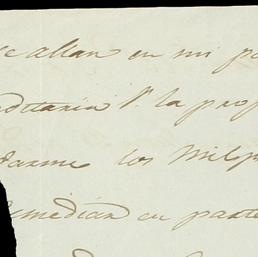 se allan en mi po
aditaria P. la prop
darme los Milp
remedian en parte